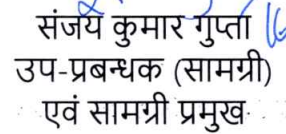 संजय कुमार गुप्ता
उप-प्रबन्धक (सामग्री)
एवं सामग्री प्रमुख